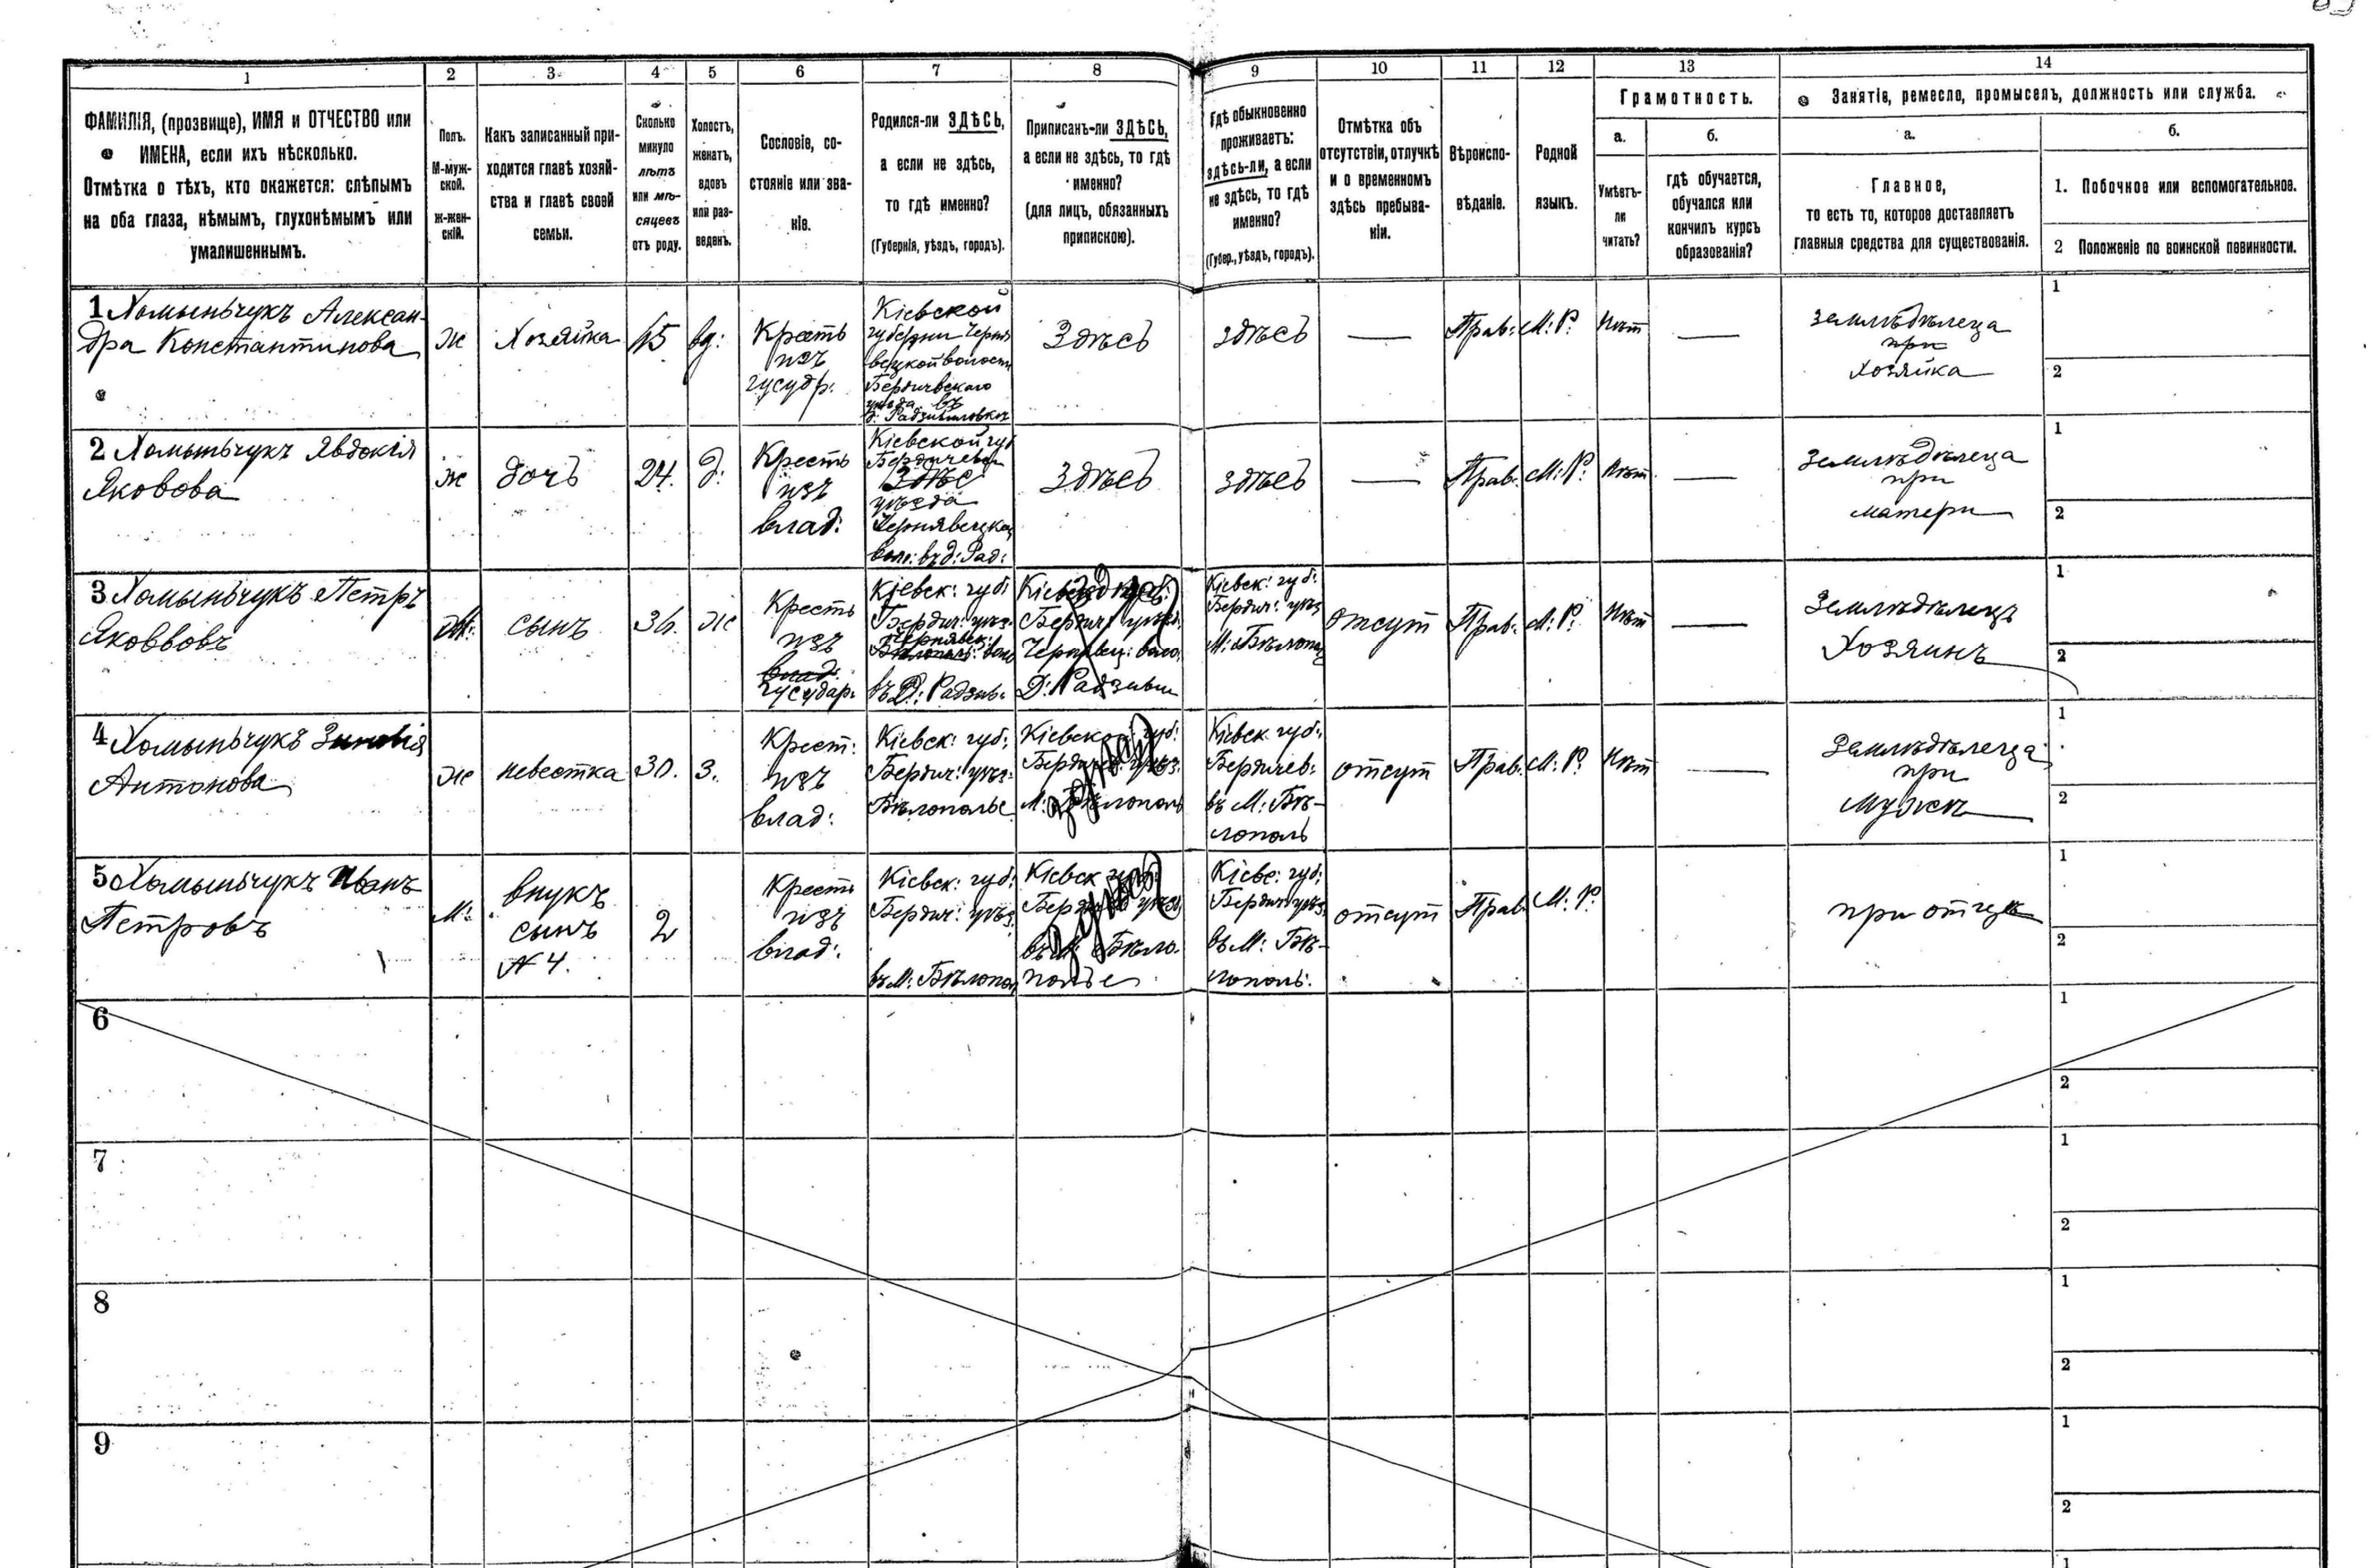 1 2 3 4 5 6 7 8 9 10 11 12 13 14
ФАМИЛІЯ, (прозвище), ИМЯ и ОТЧЕСТВО или
ИМЕНА, если ихъ нѣсколько.
Отмѣтка о тѣхъ, кто окажется: слѣпымъ
на оба глаза, нѣмымъ, глухонѣмымъ или
умалишеннымъ.
Полъ.
М-муж-
ской.
ж-жен-
скій.
Какъ записанный при-
ходится главѣ хозяй-
ства и главѣ своей
семьи.
Сколько
минуло
лѣтъ
или мѣ-
сяцевъ
отъ роду.
Холостъ,
женатъ,
вдовъ
или раз-
веденъ.
Сословіе, со-
стояніе или зва-
ніе.
Родился-ли ЗДѢСЬ,
а если не здѣсь,
то гдѣ именно?
(Губернія, уѣздъ, городъ).
Приписанъ-ли ЗДѢСЬ,
а если не здѣсь, то гдѣ
именно?
(для лицъ, обязанныхъ
припискою).
Гдѣ обыкновенно
проживаетъ:
здѣсь-ли, а если
не здѣсь, то гдѣ
именно?
(Губер., уѣздъ, городъ).
Отмѣтка объ
отсутствіи, отлучкѣ
и о временномъ
здѣсь пребыва-
ніи.
Вѣроиспо-
вѣданіе.
Родной
языкъ.
Грамотность.
а.
Умѣетъ-
ли
читать?
б.
гдѣ обучается,
обучался или
кончилъ курсъ
образованія?
Занятіе, ремесло, промыселъ, должность или служба.
а.
Главное,
то есть то, которое доставляетъ
главныя средства для существованія.
б.
1. Побочное или вспомогательное.
2 Положеніе по воинской повинности.
1 Хомыньчукъ Алексан-
дра Константинова
ж
Хозяйка
вд:
Кресть
изъ
гусудр.
Кіевской
губерни Черня
вецкой волости
Бердичевскаго
уѣзда въ
д: Радзивиловкѣ
Здѣсь
здѣсь
—
Прав:
М: Р.
Нѣт
—
Землѣдѣлеца
при
Хозяйка
1
2
2 Хомыньчукъ Явдокія
Яковова
ж
дочь
24.
д:
Кресть
изъ
влад:
Кіевской губ
Бердичевск
Здѣс
уѣзда
Чернявецкой
воло: въ д: Рад:
Здѣсь
здѣсь
—
Прав:
М: Р.
Нѣт
—
Землѣдѣлеца
при
матери
1
2
3 Хомыньчукъ Петръ
Яковвовъ
М:
сынъ
36.
Ж
Кресть
изъ
влад:
гусудар:
Кіевск: губ:
Бердич: уѣз:
Чернявск:
Бѣлополь: воло
въ Д: Радзив:
Бердич: уѣзд:
Чернявец: воло:
Д: Радзивил
Кіевск: губ:
Бердич: уѣз
М: Бѣлопол
отсут
Прав:
М: Р.
Нѣт
—
Землѣдѣлецъ
Хозяинъ
1
2
4 Хомыньчукъ Зиновія
Антонова
ж
невестка
30.
З.
Крест:
изъ
влад:
Кіевск: губ:
Бердич: уѣз:
Бѣлополье
Кіевско: губ:
Бердич: уѣз.
М: Бѣлополь
Кіевск губ:
Бердичев:
въ М: Бѣ-
лополь
отсут
Прав:
М: Р.
Нѣт
—
Землѣдѣлеца
при
Мужѣ
1
2
5 Хомыньчукъ Иванъ
Петровъ
М:
внукъ
сынъ
№ 4.
2
Кресть
изъ
влад:
Кіевск: губ:
Бердич: уѣз:
въ М: Бѣлопол
Кіевск губ:
Бердич: уѣз
въ М: Бѣло-
полье
Кіевс: губ:
Бердич: уѣз:
въ М: Бѣ-
лополь:
отсут
Прав:
М: Р.
при отцѣ
1
2
6
1
2
7
1
2
8
1
2
9
1
2
1